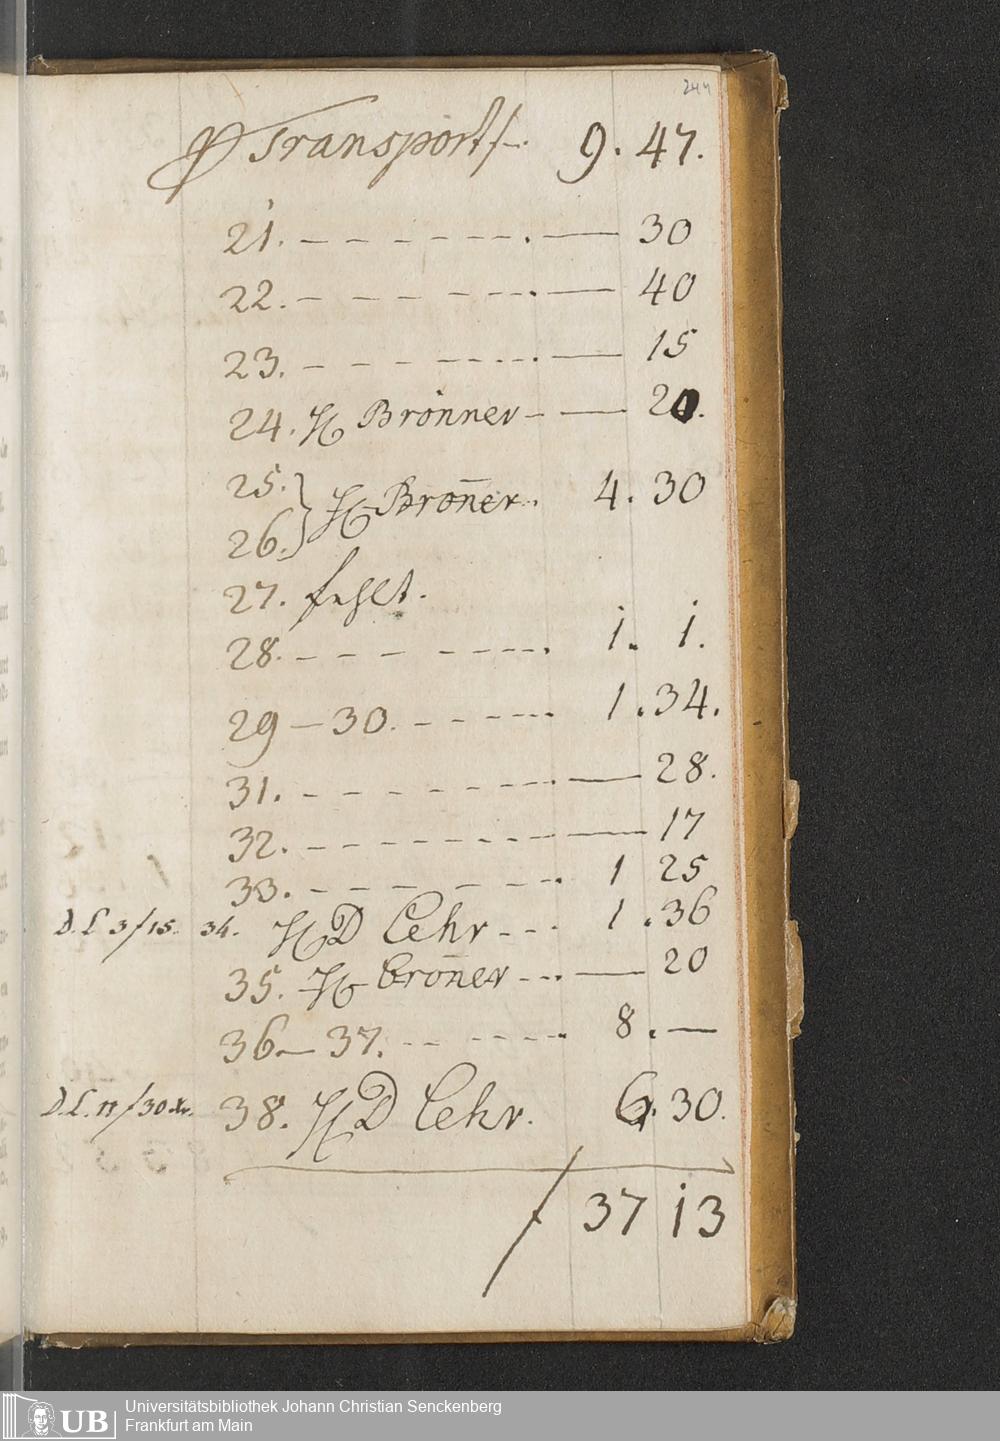 244
Transport f. 9. 47.
21. – – – – – – – . — 30
22. – – – – – – . — 40
23. – – – – – – . — 15
24. H Brönner – — 20.
25. } H Bron̄er. 4. 30
26.
27. fehlt.
28. – – – – – – . 1. 1.
29 – 30. – – – – . 1. 34.
31. – – – – – – – — 28.
32. – – – – – – – — 17
33. – – – – – – . 1 25
D. L 3/15. 34. H D Lehr – – – 1. 36
35. H Bron̄er – – . — 20
36 – 37. – – – – – . 8. —
D. L. 11/30 xr. 38. H D Lehr. 6. 30.
f 37 13
UB Universitätsbibliothek Johann Christian Senckenberg
Frankfurt am Main